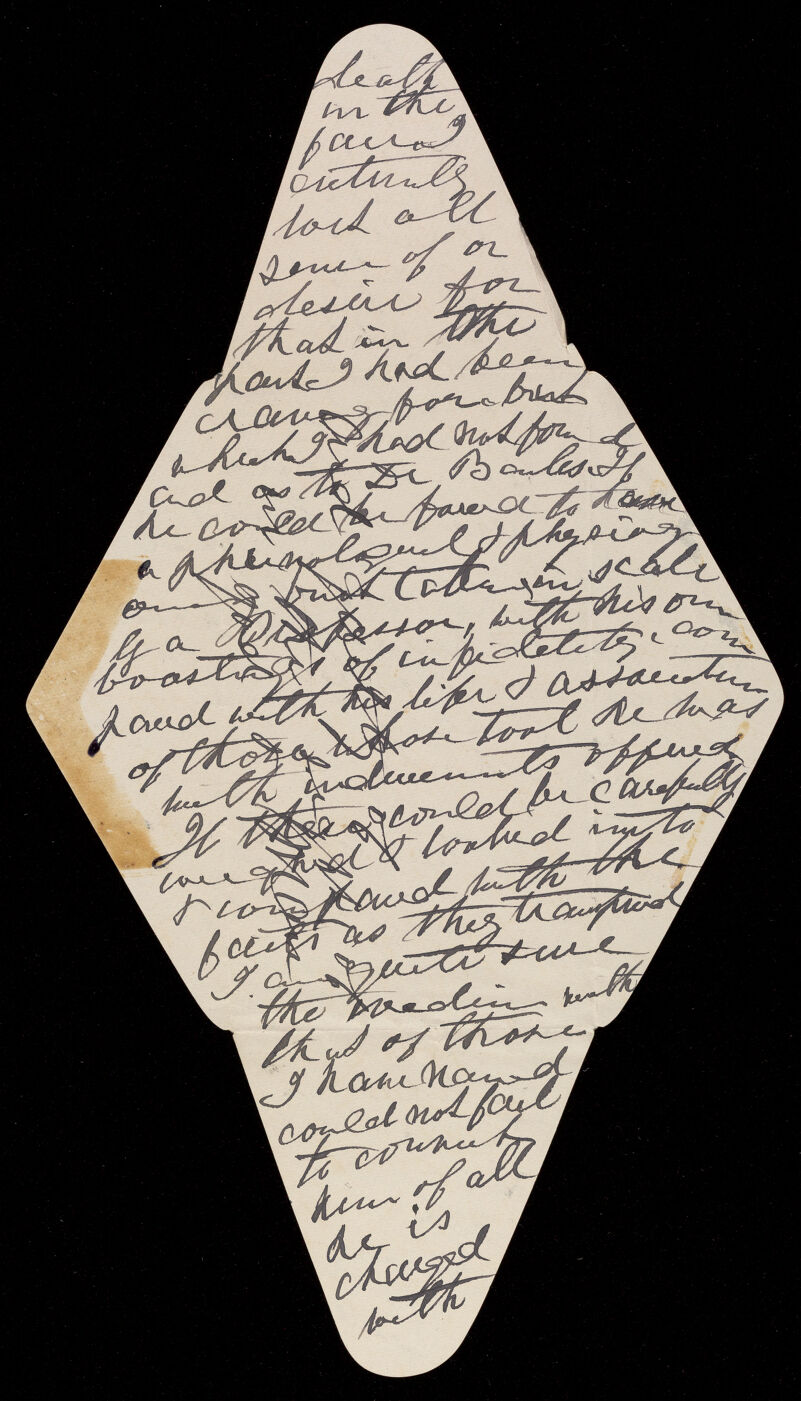 death
in the
face I
entirely
lost all
sense of or
desire for
that in the
past I had been
craving for but
which I had not found
and as to Dr Bowles If
he could be forced to have
a phrenological & physiog
bust taken in scale
by a Professor, with his own
boastings of infidelity, com
pared with his life & association
of those whose tool he was
with inducements offered
If these could be carefully
weighed & looked into
& compared with the
facts as they transpired
I am quite sure
the reading with
that of those
I have named
could not fail
to convict
him of all
he is
charged
with